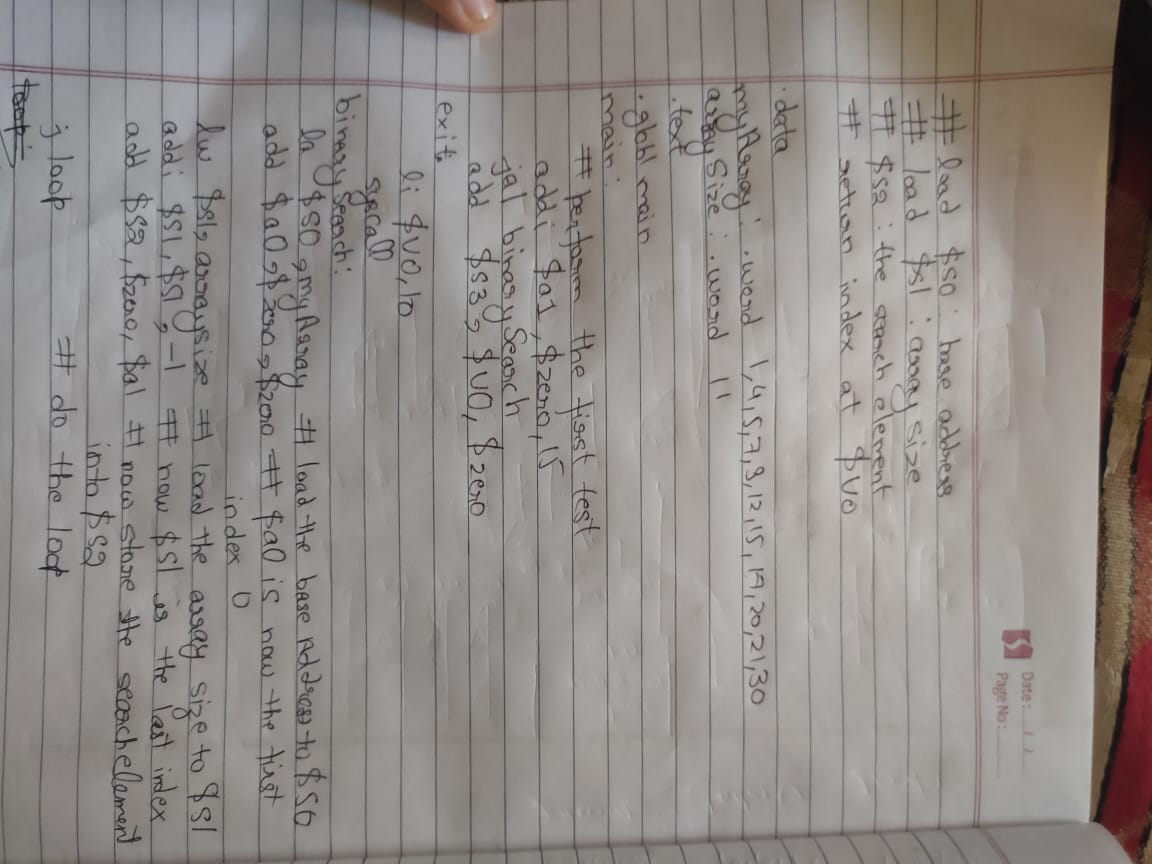 Date: __/__/__
Page No:
# load $s0 : base address
# load $s1 : array size
# $s2 : the search element
# return index at $v0
.data
myArray: .word 1,4,5,7,9,12,15,17,20,21,30
arraySize: .word 11
.text
.globl main
main:
# perform the first test
addi $a1, $zero, 15
jal binarySearch
add $s3, $v0, $zero
exit:
li $v0, 10
syscall
binarySearch:
la $s0, myArray # load the base Address to $s0
add $a0, $zero, $zero # $a0 is now the first
index 0
lw $s1, arraysize # load the array size to $s1
addi $s1, $s1, -1 # now $s1 is the last index
add $s2, $zero, $a1 # now store the search element
into $s2
j loop # do the loop